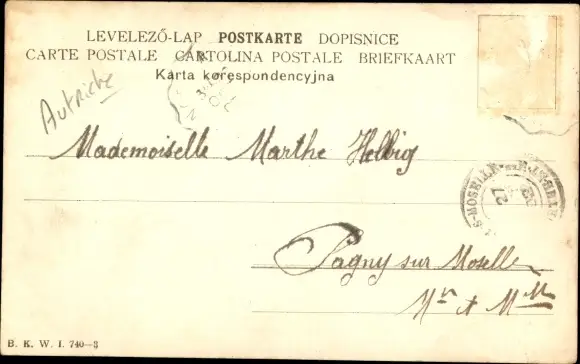 LEVELEZŐ-LAP POSTKARTE DOPISNICE
CARTE POSTALE CARTOLINA POSTALE BRIEFKAART
Karta korespondencyjna
Autriche
Mademoiselle Marthe Helbig
Pagny sur Moselle
Mr et Mlle
S-MOSELLE
27
B. K. W. I. 740-3